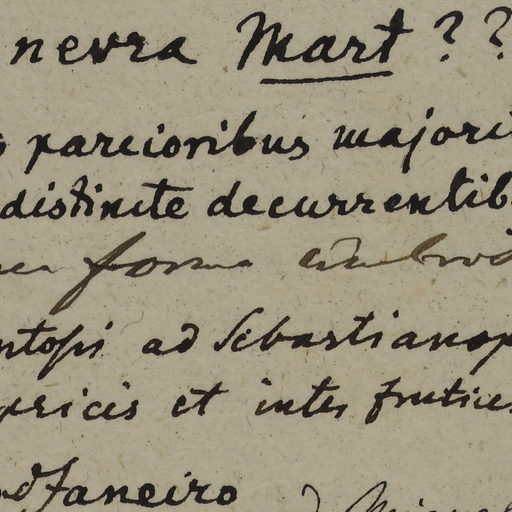 nevra Mart ? ?
parcioribus majori
distincte decurrentib
forma
ntopi ad Sebastianop
pricis et inter frutices
Janeiro